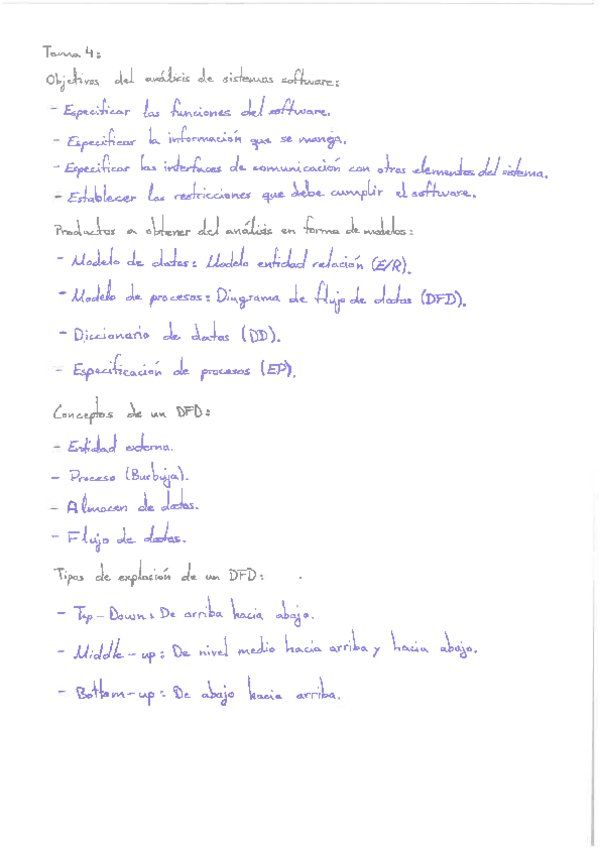 Tema 4:
Objetivos del análisis de sistemas software:
- Especificar las funciones del software.
- Especificar la información que se maneja.
- Especificar las interfaces de comunicación con otros elementos del sistema.
- Establecer las restricciones que debe cumplir el software.
Productos a obtener del análisis en forma de modelos:
- Modelo de datos: Modelo entidad relación (E/R).
- Modelo de procesos: Diagrama de flujo de datos (DFD).
- Diccionario de datos (DD).
- Especificación de procesos (EP).
Conceptos de un DFD:
- Entidad externa.
- Proceso (Burbuja).
- Almacen de datos.
- Flujo de datos.
Tipos de explosión de un DFD:
- Top-Down: De arriba hacia abajo.
- Middle-up: De nivel medio hacia arriba y hacia abajo.
- Bottom-up: De abajo hacia arriba.